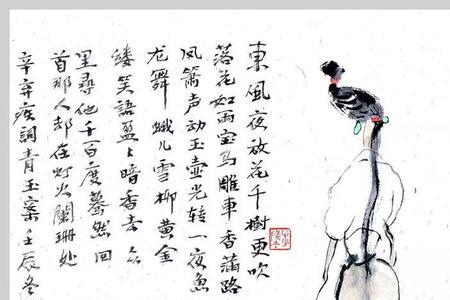 東風夜放花千樹更吹
落花如雨宝马雕車香滿路
凤箫声动玉壶光转一夜魚
龙舞 蛾儿雪柳黄金
缕笑語盈〻暗香去 众
里尋他千百度蓦然回
首那人却在灯火阑珊处
辛弃疾詞青玉案壬辰冬